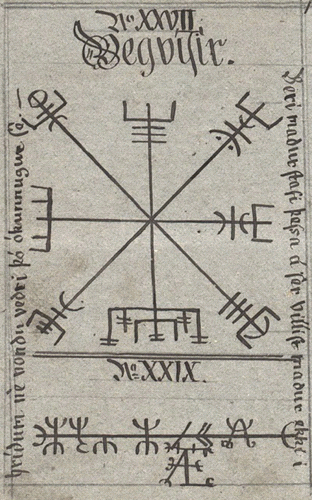 No XXVII.
Vegvísir.
Beri madur stafi þessa á sér villist madur ekki í
hrídum né vondu vedri þó ókunnugur sé
No XXIX.